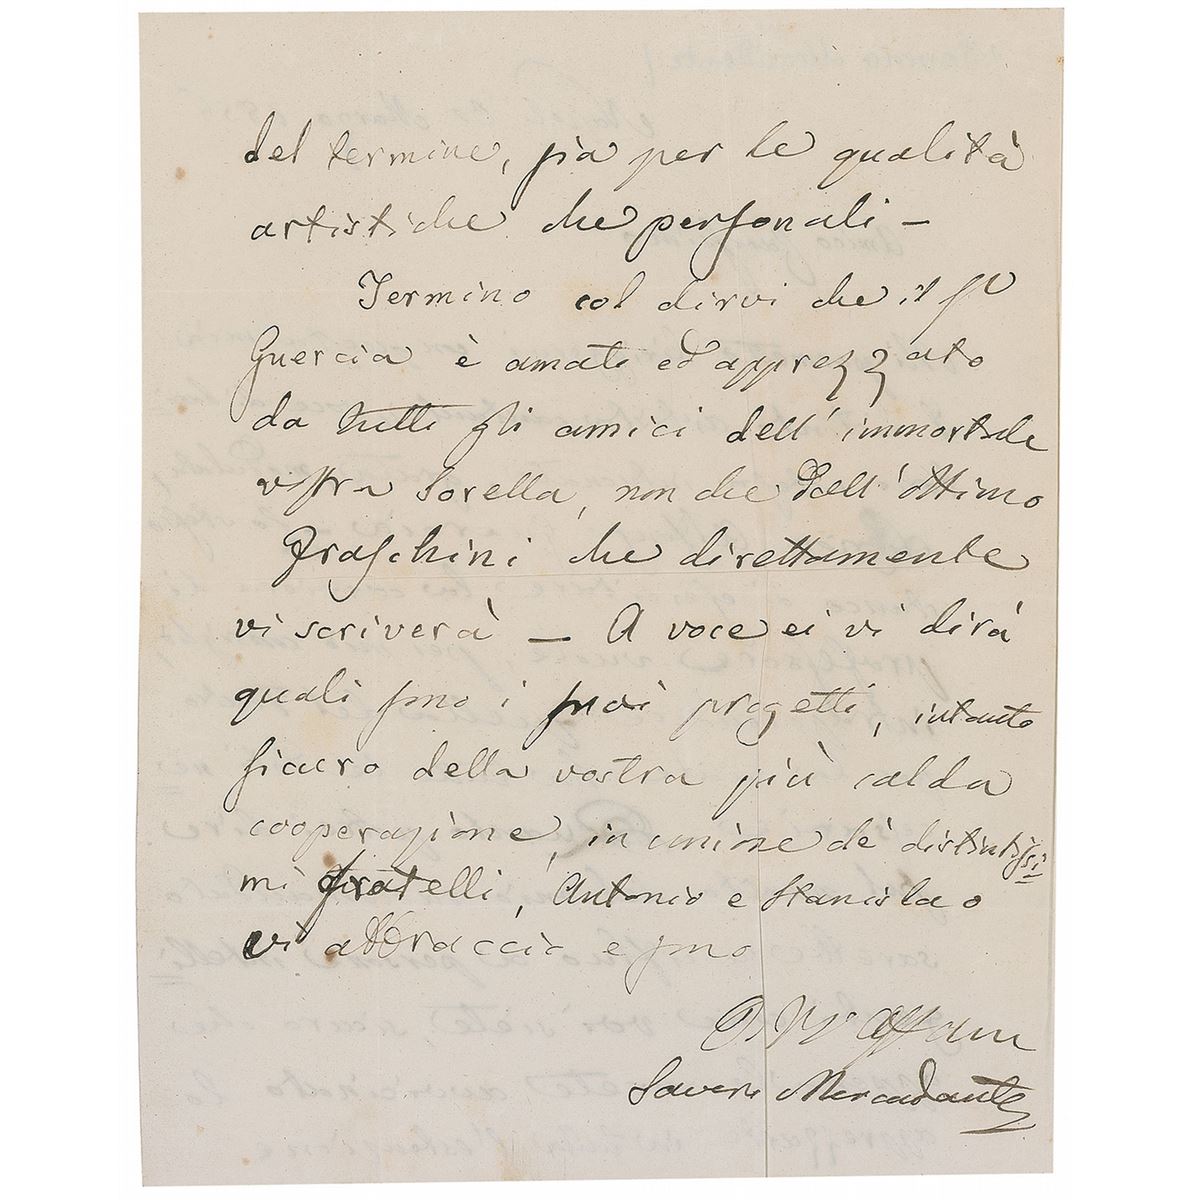 del termine, sia per le qualità
artistiche che personali –
Termino col dirvi che il Sr
Guercia è amato ed apprezzato
da tutti gli amici dell' immortale
vostra Sorella, non che dall' ottimo
Fraschini che direttamente
vi scriverà – A voce ei vi dirà
quali sono i suoi progetti, intanto
sicuro della vostra più calda
cooperazione, in unione de' distintissi
mi fratelli, Antonio e Stanislao
vi abbraccio e sono
Vo Affmo
Saverio Mercadante